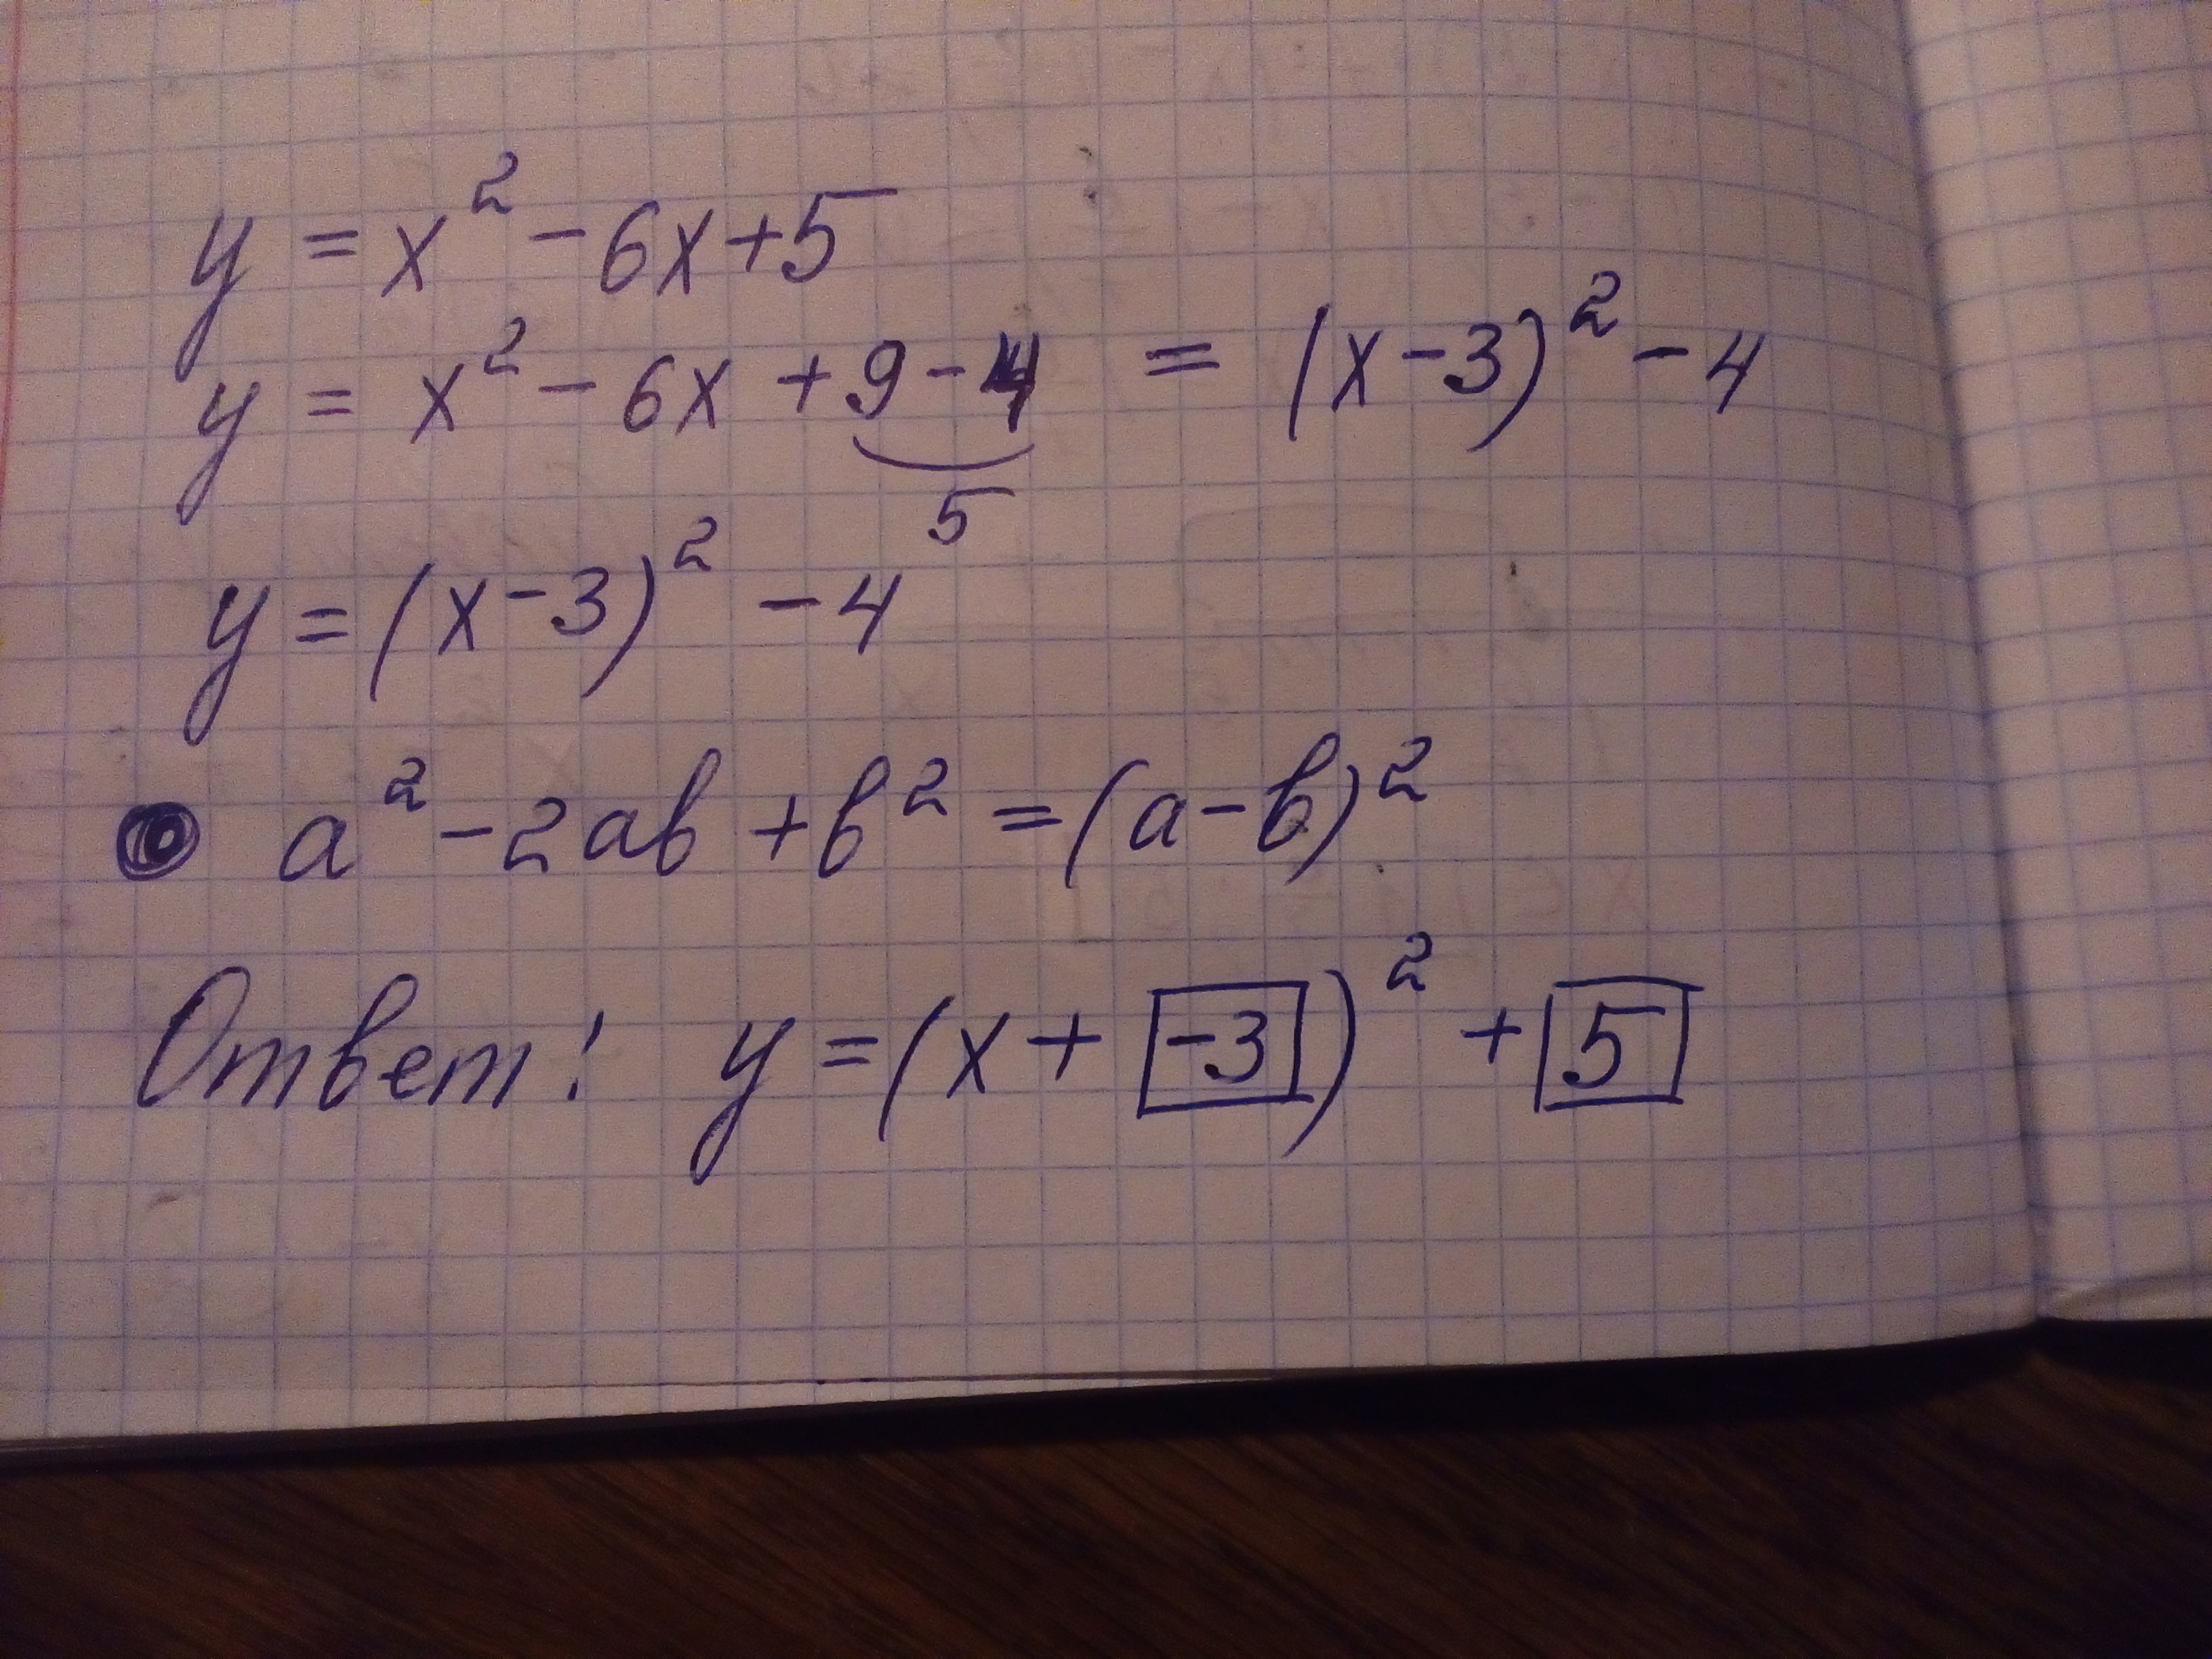 y = x² - 6x + 5
y = x² - 6x + 9 - 4 = (x - 3)² - 4
5
y = (x - 3)² - 4
a² - 2ab + b² = (a - b)²
Ответ: y = (x + -3)² + 5